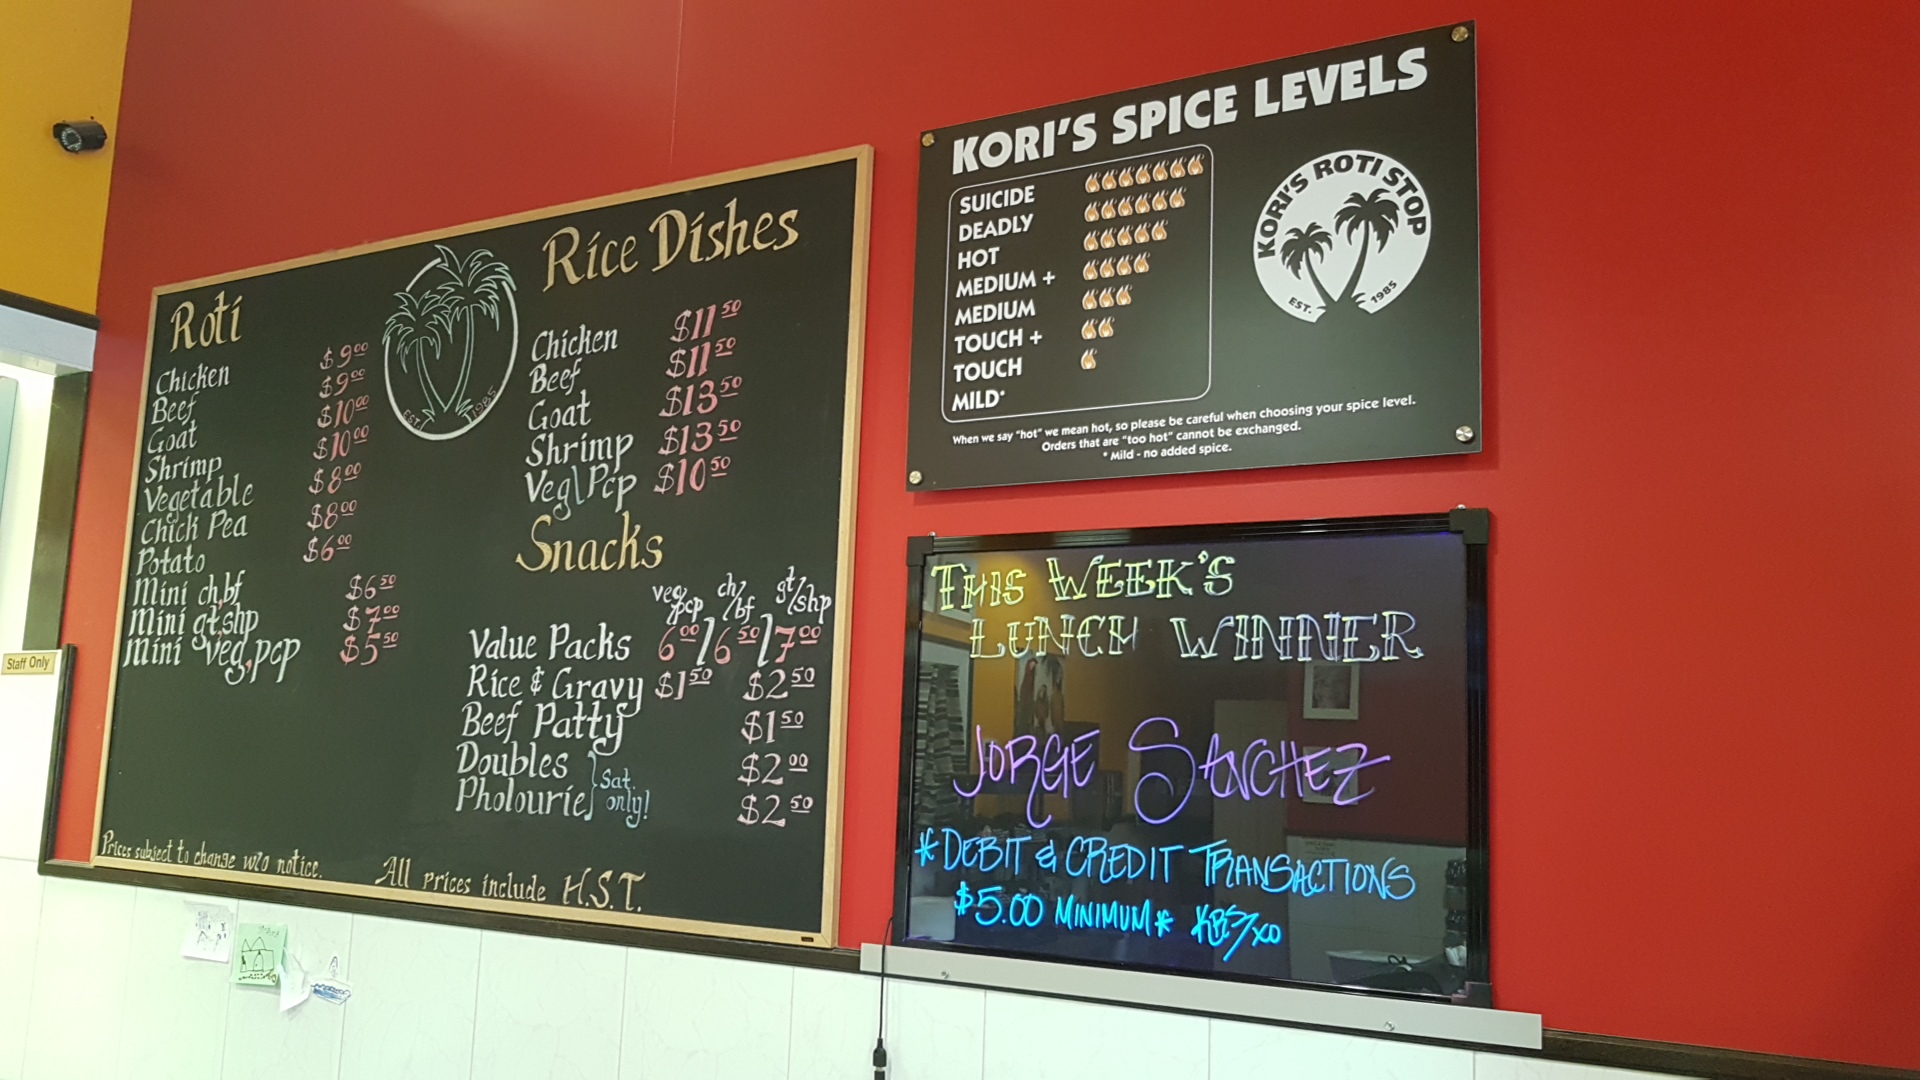 Roti
Chicken $9.00
Beef $9.00
Goat $10.00
Shrimp $10.00
Vegetable $8.00
Chick Pea $8.00
Potato $6.00
Mini ch,bf $6.50
Mini gt,shp $7.00
Mini veg,pcp $5.50
EST. 1985
Rice Dishes
Chicken $11.50
Beef $11.50
Goat $13.50
Shrimp $13.50
Veg\Pcp $10.50
Snacks
veg/pcp ch/bf gt/shp
Value Packs 6.00/6.50/7.00
Rice & Gravy $1.50 $2.50
Beef Patty $1.50
Doubles $2.00
Pholourie $2.50
Sat. only!
Prices subject to change w/o notice.
All prices include H.S.T.
Staff Only
KORI'S SPICE LEVELS
SUICIDE
DEADLY
HOT
MEDIUM +
MEDIUM
TOUCH +
TOUCH
MILD*
KORI'S ROTI STOP
EST. 1985
When we say "hot" we mean hot, so please be careful when choosing your spice level.
Orders that are "too hot" cannot be exchanged.
* Mild - no added spice.
THIS WEEK'S
LUNCH WINNER
JORGE SANCHEZ
*DEBIT & CREDIT TRANSACTIONS
$5.00 MINIMUM*